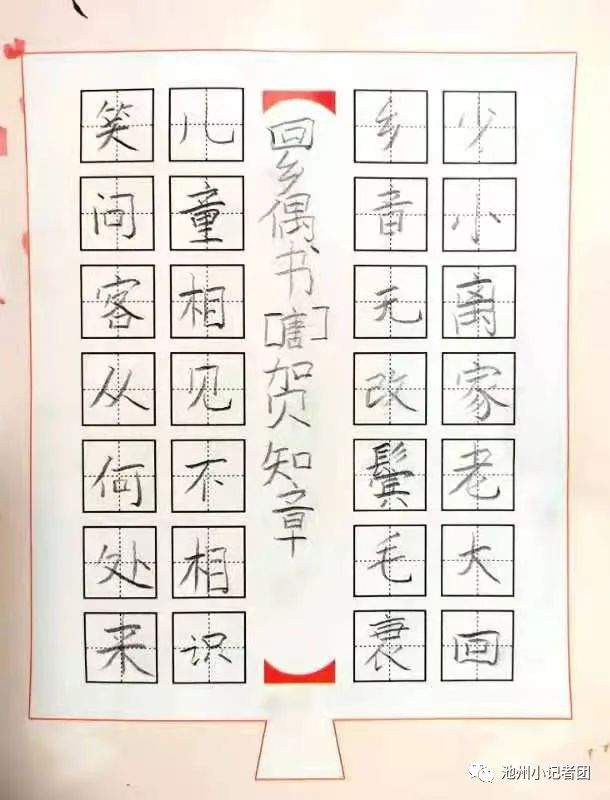 少小离家老大回
乡音无改鬓毛衰
回乡偶书[唐]贺知章
儿童相见不相识
笑问客从何处来
池州小记者团